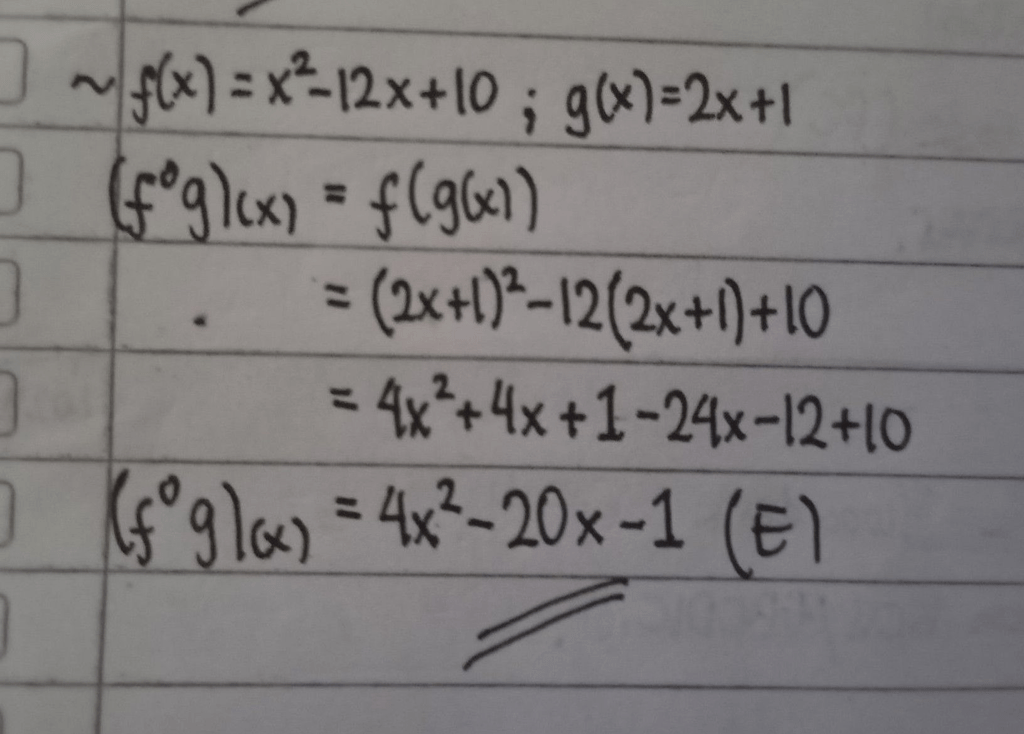 ~ f(x) = x²-12x+10 ; g(x)=2x+1
(f°g)(x) = f(g(x))
= (2x+1)²-12(2x+1)+10
= 4x²+4x+1-24x-12+10
(f°g)(x) = 4x²-20x-1 (E)